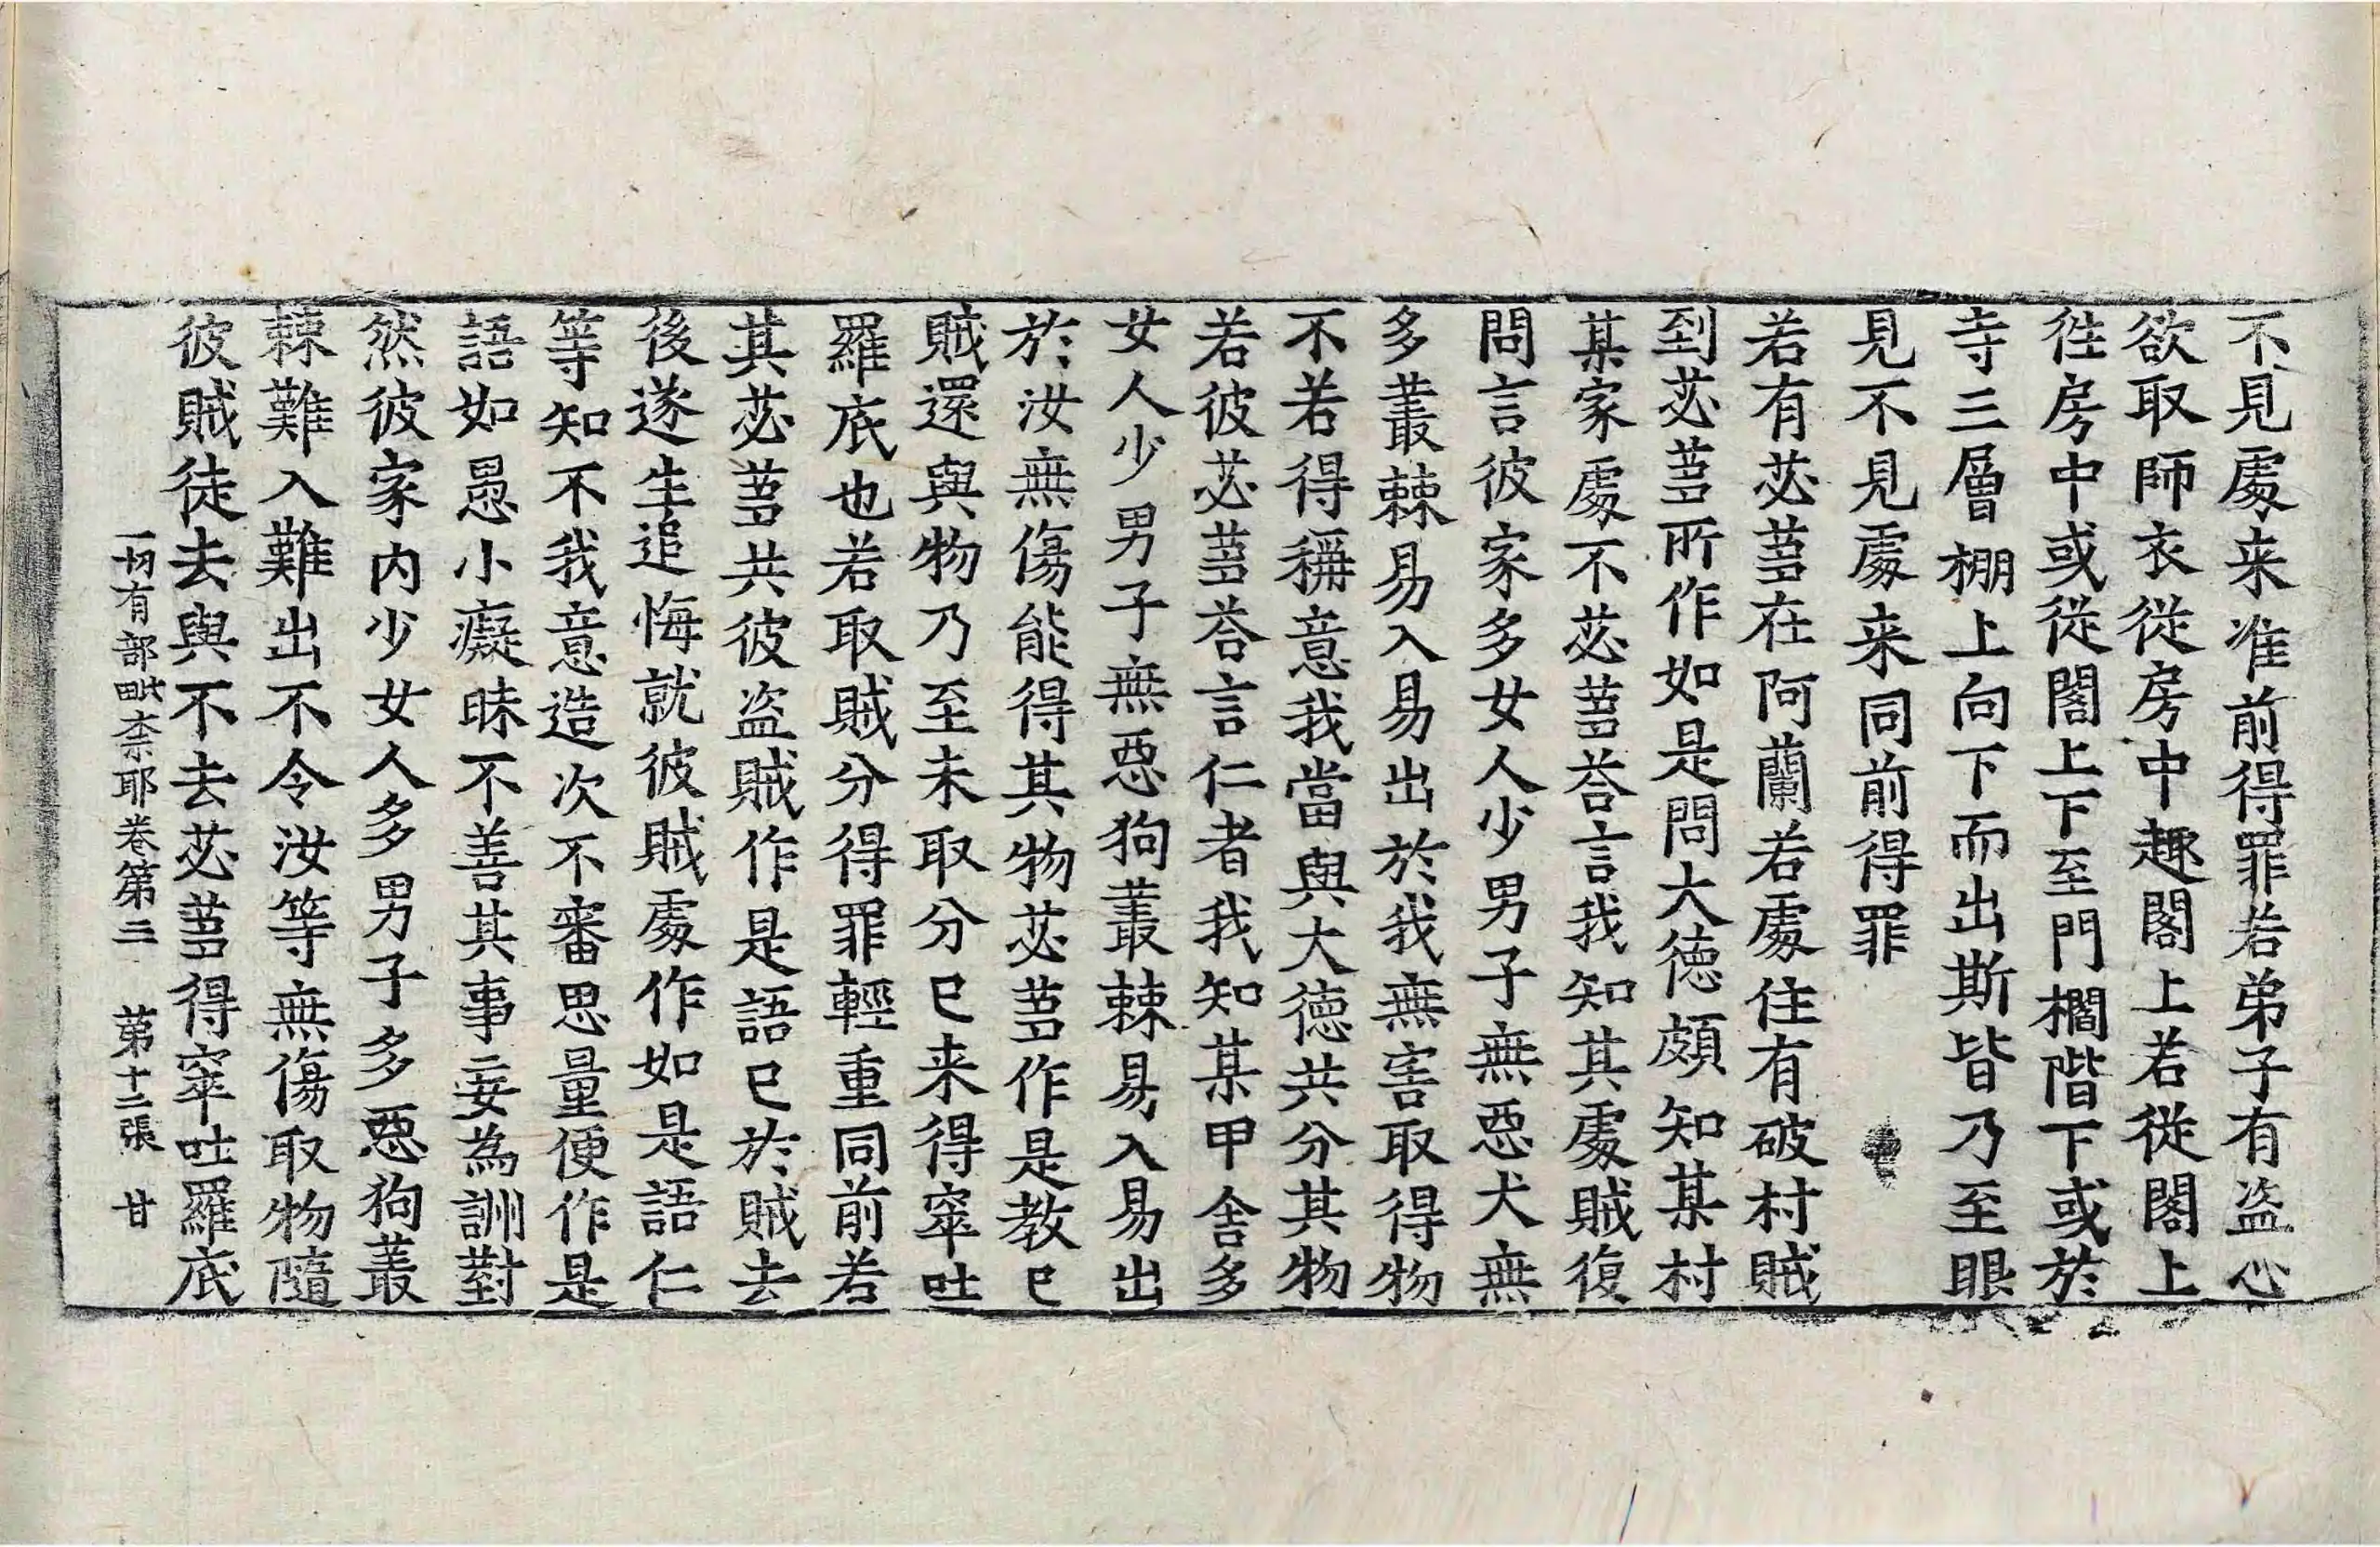 不見處来准前得罪若弟子有盗心
欲取師衣從房中趣閣上若從閣上
徃房中或從閣上下至門櫩階下或於
寺三層棚上向下而出斯皆乃至眼
見不見處来同前得罪
若有苾蒭在阿蘭若處住有破村賊
到苾蒭所作如是問大德頗知某村
某家處不苾蒭荅言我知其處賊復
問言彼家多女人少男子無惡犬無
多叢棘易入易出於我無害取得物
不若得稱意我當與大德共分其物
若彼苾蒭荅言仁者我知某甲舍多
女人少男子無惡狗叢棘易入易出
於汝無傷能得其物苾蒭作是教已
賊還與物乃至未取分已来得窣吐
羅底也若取賊分得罪輕重同前若
其苾蒭共彼盗賊作是語已於賊去
後遂生追悔就彼賊處作如是語仁
等知不我意造次不審思量便作是
語如愚小癡昧不善其事妄為訓對
然彼家内少女人多男子多惡狗叢
棘難入難出不令汝等無傷取物隨
彼賊徒去與不去苾蒭得窣吐羅底
一切有部毗柰耶卷第三　第十二張　甘